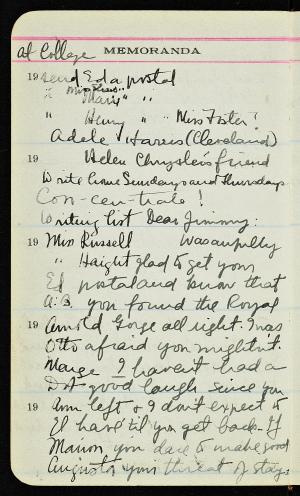 at College MEMORANDA
19 send Ed a postal
" Miss Riess "
" Mary " "
" Henry " " Miss Foster?
Adele Harris (Cleveland)
19 Helen Chrysler's friend
Write home Sundays and Thursdays
Con-cen-trate!
Writing list Dear Jimmy:
19 Miss Russell Was awfully
" Haight glad to get your
Ed postal and know that
A.B. you found the Royal
19 Arnold Gorge all right. I was
Otto afraid you mightn't.
Marge I haven't had a
Dot good laugh since you
19 Ann left & I don't expect to
El have 'til you get back. If
Marion you dare to make good
Augusta your threat of stay-